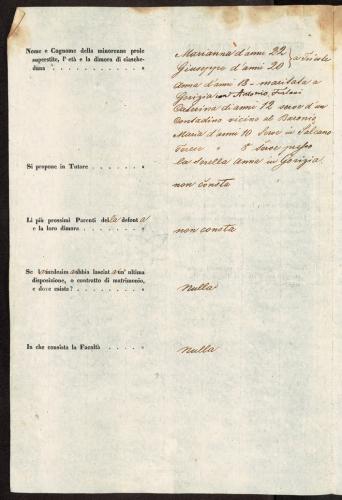 Nome e Cognome della minorenne prole
superstite, l' età e la dimora di ciasche-
duna
Marianna d'anni 22
Giuseppe d'anni 20 } a Trieste
Anna d'anni 18 - maritata a
Gorizia con Antonio
Caterina di anni 12 serve d'un
Contadino vicino al Baronio
Maria d'anni 10 serve in Salcano
8 serve presso
la sorella Anna in Gorizia
Si propone in Tutore
non consta
Li più prossimi Parenti della defonta
e la loro dimora
non consta
Se abbia lasciat un' ultima
disposizione, o contratto di matrimonio,
e dove esista?
nulla
In che consista la Facoltà
nulla